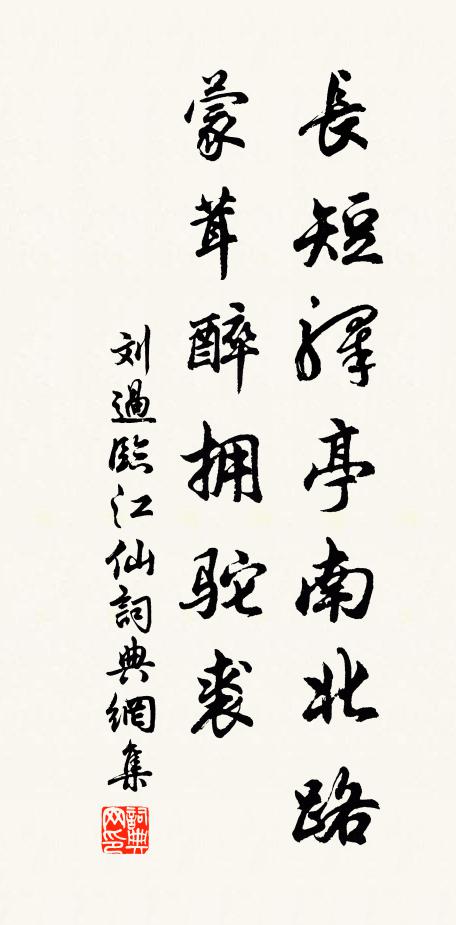 長短驛亭南北路
蒙茸醉拥駝裘
刘過臨江仙詞典網集
詞典
网印